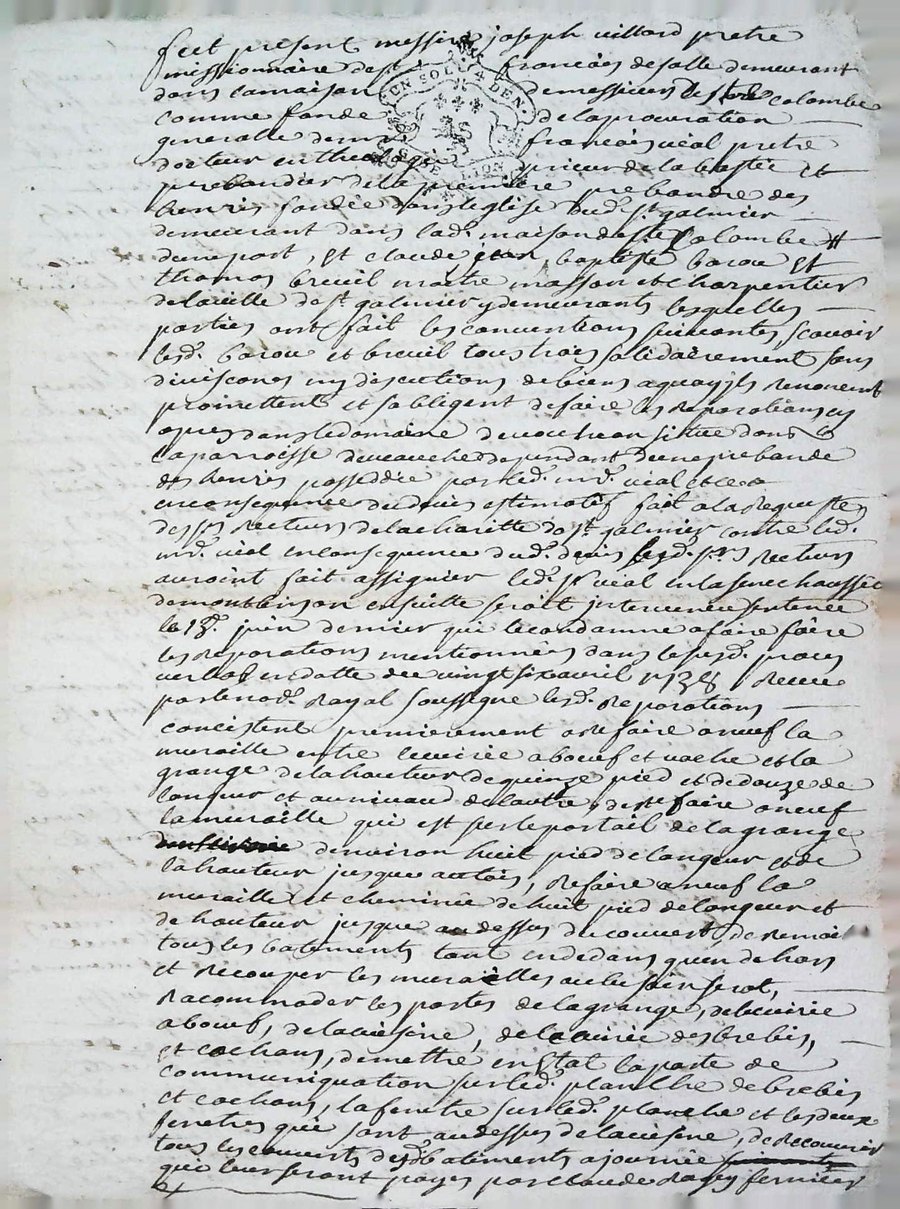 fut present messire joseph villard pretre
missionnaire de st francois de salle demeurant
dans la maison de messieurs de ste colombe
comme fondé de la procuration
UN SOL 4 DEN.
G. DE LION
generalle de mre francois vial pretre
docteur en theologie prieur de la bastie et
prebandier de la premiere prebande des
henris fondée dans leglise dud. st galmier
demeurant dans lad. maison de ste Colombe
dune part, et claude jean baptiste barou et
thomas breuil maitre masson et charpentier
de la ville de st galmier y demeurants lesquelles
parties ont fait les conventions suivantes, scavoir
lesd. barou et breuil tous trois solidairement sans
divisions ny discutions de biens a quoy ils renoncent
promettent et sobligent de faire les reparations cy
apres dans le domaine de situé dans
la parroisse de veauche dependant dune prebande
des henris possedée par led. mr. vial et ce
en consequence du devis estimatif fait a la requeste
des srs recteurs de la charitté de st galmier contre led.
mr. vial en consequence dud. devis lesd. srs recteurs
auroint fait assigner led. sr vial en la senechaussée
de montbrison ensuitte seroit intervenue sentence
le 13. juin dernier qui le condamne a faire faire
les reparations mentionnées dans le susd. proces
verbal en datte du vingt six avril 1738 receu
par le nore. Royal soussigné lesd. reparations
concistent premierement a refaire a neuf la
muraille entre lecuirie a boeuf et vache et la
grange de la hauteur de quinze pied et de douze de
longeur et au niveaud de lautre, de refaire a neuf
la muraille qui est sur le portail de la grange
denviron huit pied de longeur et de
la hauteur jusque au toit, refaire a neuf la
muraille et cheminée de huit pied de longeur et
de hauteur jusque au dessus du couvert, de
tous les batiments tant en dedans quen dehors
et recouper les murailles ou besoin serat,
racommoder les portes de la grange, de lecuirie
a boeuf, de la cuisine, de lecuirie des brebis,
et cochons, de mettre en etat la porte de
communiquation sur led. planche de brebis
et cochons, la fenetre sur led. planche et les deux
fenetres qui sont au dessus de la cuisine, de recouvrir
tous les couverts desd. batiments a journée
qui leur seront payés par claude fermier